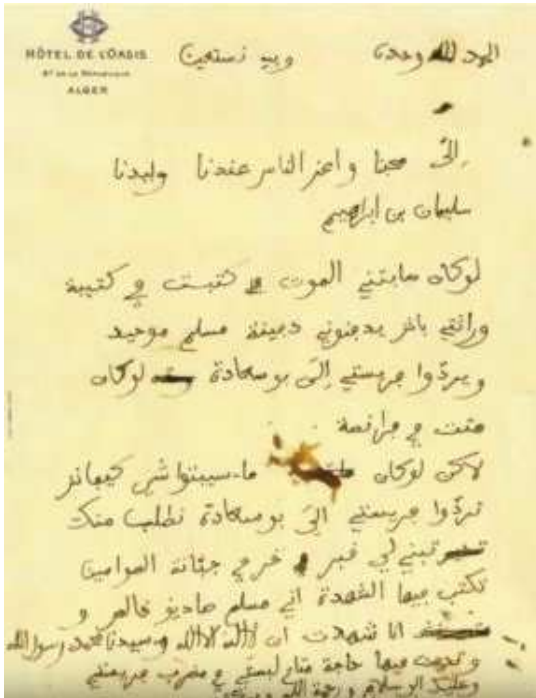 HÔTEL DE L'OASIS
Bᵈ DE LA RÉPUBLIQUE
ALGER
الحمد لله وحده وبه نستعين
إلى محبنا واعز الناس عندنا وليدنا
سليمان بن ابراهيم
لوكان جابتني الموت كتبت في كتيبة
وراثتي باش يدفنوني دفينة مسلم موحيد
ويردّوا جريستي إلى بوسعادة لوكان
متت في فرانصة
لاكن لوكان ما
تردّوا جريستي الى بوسعادة نطلب منك
تبني لي قبر جبانة الموامين
تكتب فيها الشهدة اني مسلم
انا شهدت ان لا اله الا الله وسيدنا محمد رسول الله
فيها حاجة متاع لبستي في مضرب جريستي
وعليك السلام ورحمة الله